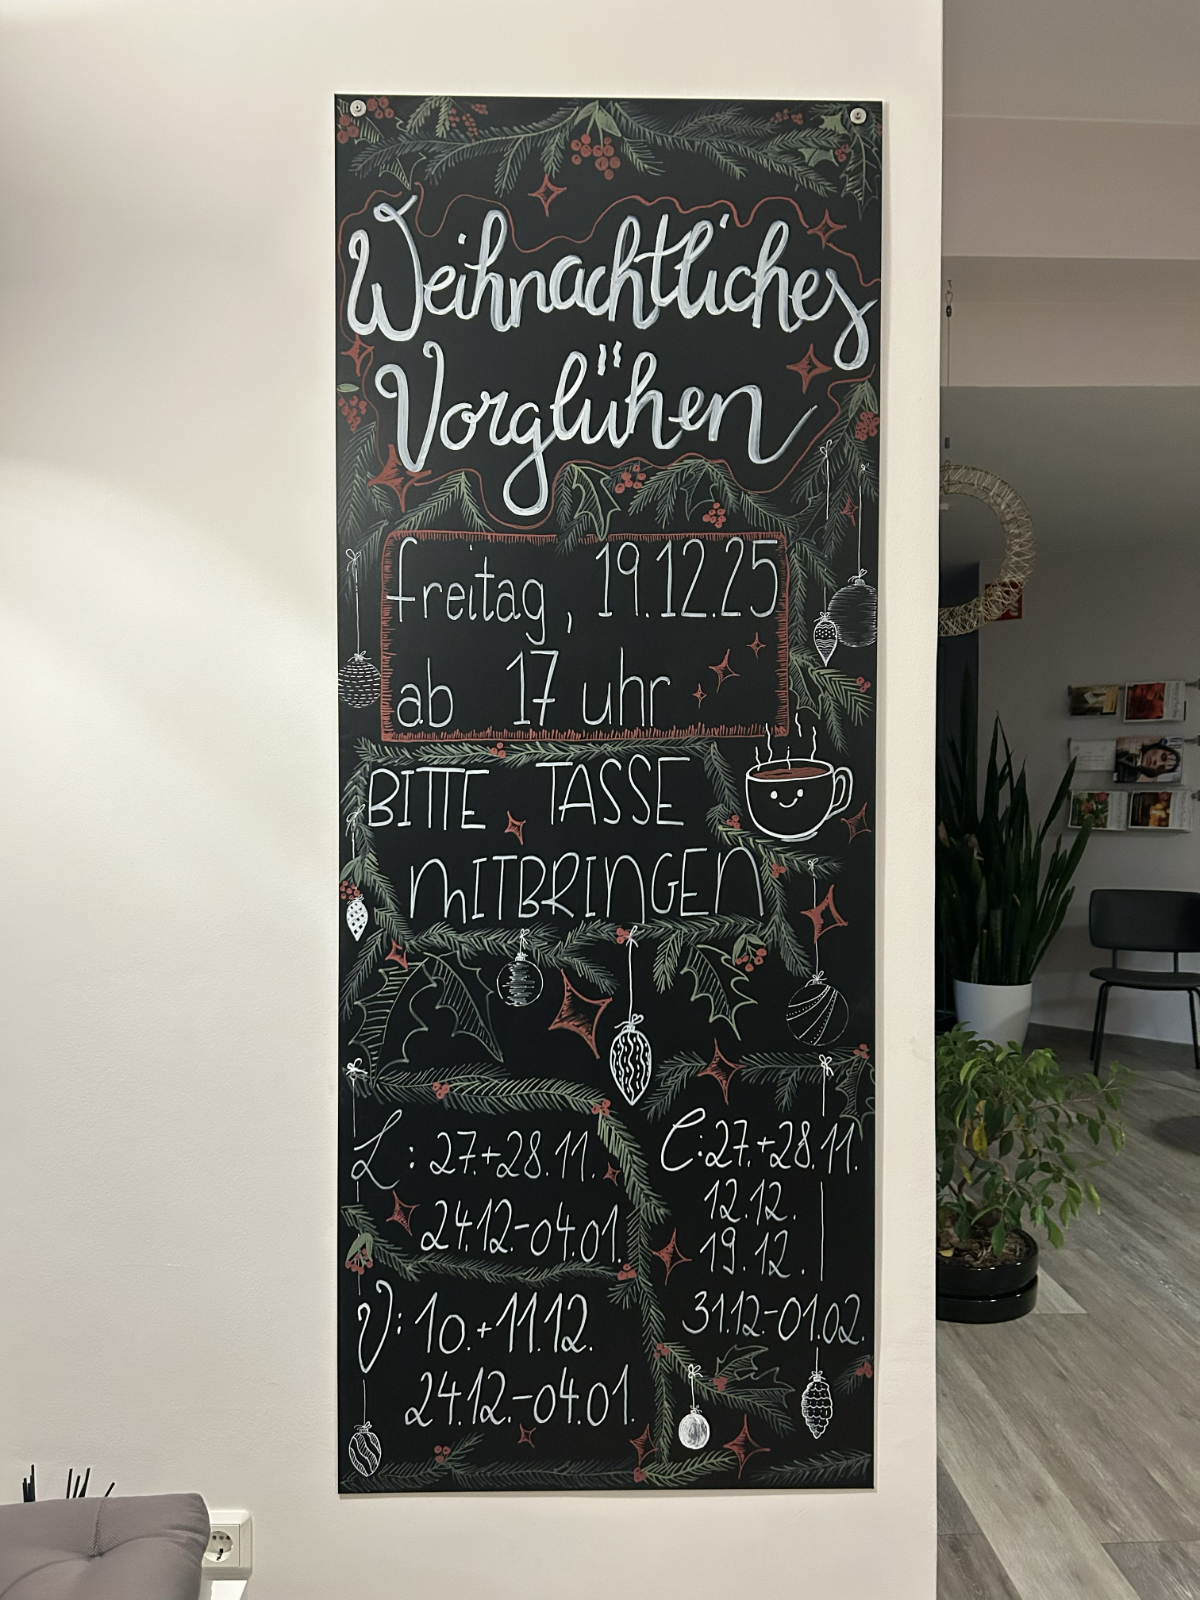 Weihnachtliches
Vorglühen
freitag, 19.12.25
ab 17 uhr
BITTE TASSE
MITBRINGEN
L: 27.+28.11.
24.12.-04.01.
V: 10.+11.12.
24.12.-04.01.
C: 27.+28.11.
12.12.
19.12.
31.12-01.02.